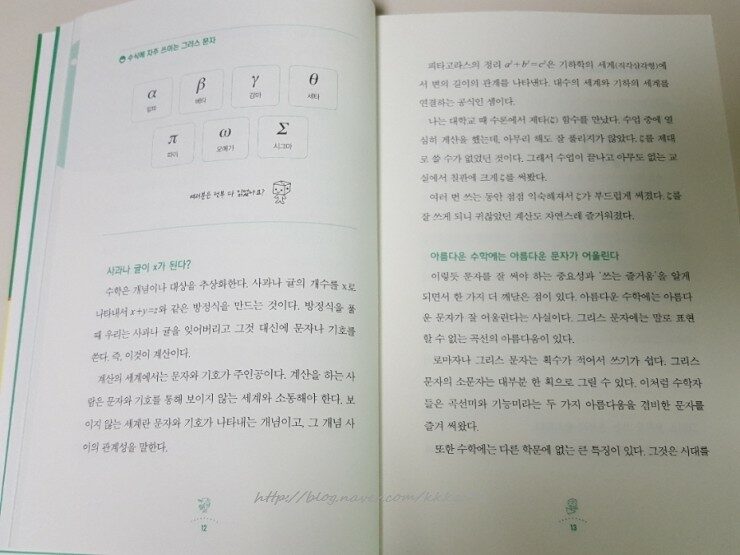 수식에 자주 쓰이는 그리스 문자
α
알파
β
베타
γ
감마
θ
세타
π
파이
ω
오메가
Σ
시그마
여러분은 전부 다 읽었나요?
사과나 귤이 x가 된다?
수학은 개념이나 대상을 추상화한다. 사과나 귤의 개수를 x로
나타내서 x+y=z와 같은 방정식을 만드는 것이다. 방정식을 풀
때 우리는 사과나 귤을 잊어버리고 그것 대신에 문자나 기호를
쓴다. 즉, 이것이 계산이다.
계산의 세계에서는 문자와 기호가 주인공이다. 계산을 하는 사
람은 문자와 기호를 통해 보이지 않는 세계와 소통해야 한다. 보
이지 않는 세계란 문자와 기호가 나타내는 개념이고, 그 개념 사
이의 관계성을 말한다.
12
피타고라스의 정리 a²+b²=c²은 기하학의 세계(직각삼각형)에
서 변의 길이의 관계를 나타낸다. 대수의 세계와 기하의 세계를
연결하는 공식인 셈이다.
나는 대학교 때 수론에서 제타(ζ) 함수를 만났다. 수업 중에 열
심히 계산을 했는데, 아무리 해도 잘 풀리지가 않았다. ζ를 제대
로 쓸 수가 없었던 것이다. 그래서 수업이 끝나고 아무도 없는 교
실에서 칠판에 크게 ζ를 써봤다.
여러 번 쓰는 동안 점점 익숙해져서 ζ가 부드럽게 써졌다. ζ를
잘 쓰게 되니 귀찮았던 계산도 자연스레 즐거워졌다.
아름다운 수학에는 아름다운 문자가 어울린다
이렇듯 문자를 잘 써야 하는 중요성과 '쓰는 즐거움'을 알게
되면서 한 가지 더 깨달은 점이 있다. 아름다운 수학에는 아름다
운 문자가 잘 어울린다는 사실이다. 그리스 문자에는 말로 표현
할 수 없는 곡선의 아름다움이 있다.
로마자나 그리스 문자는 획수가 적어서 쓰기가 쉽다. 그리스
문자의 소문자는 대부분 한 획으로 그릴 수 있다. 이처럼 수학자
들은 곡선미와 기능미라는 두 가지 아름다움을 겸비한 문자를
즐겨 써왔다.
또한 수학에는 다른 학문에 없는 큰 특징이 있다. 그것은 시대를
13